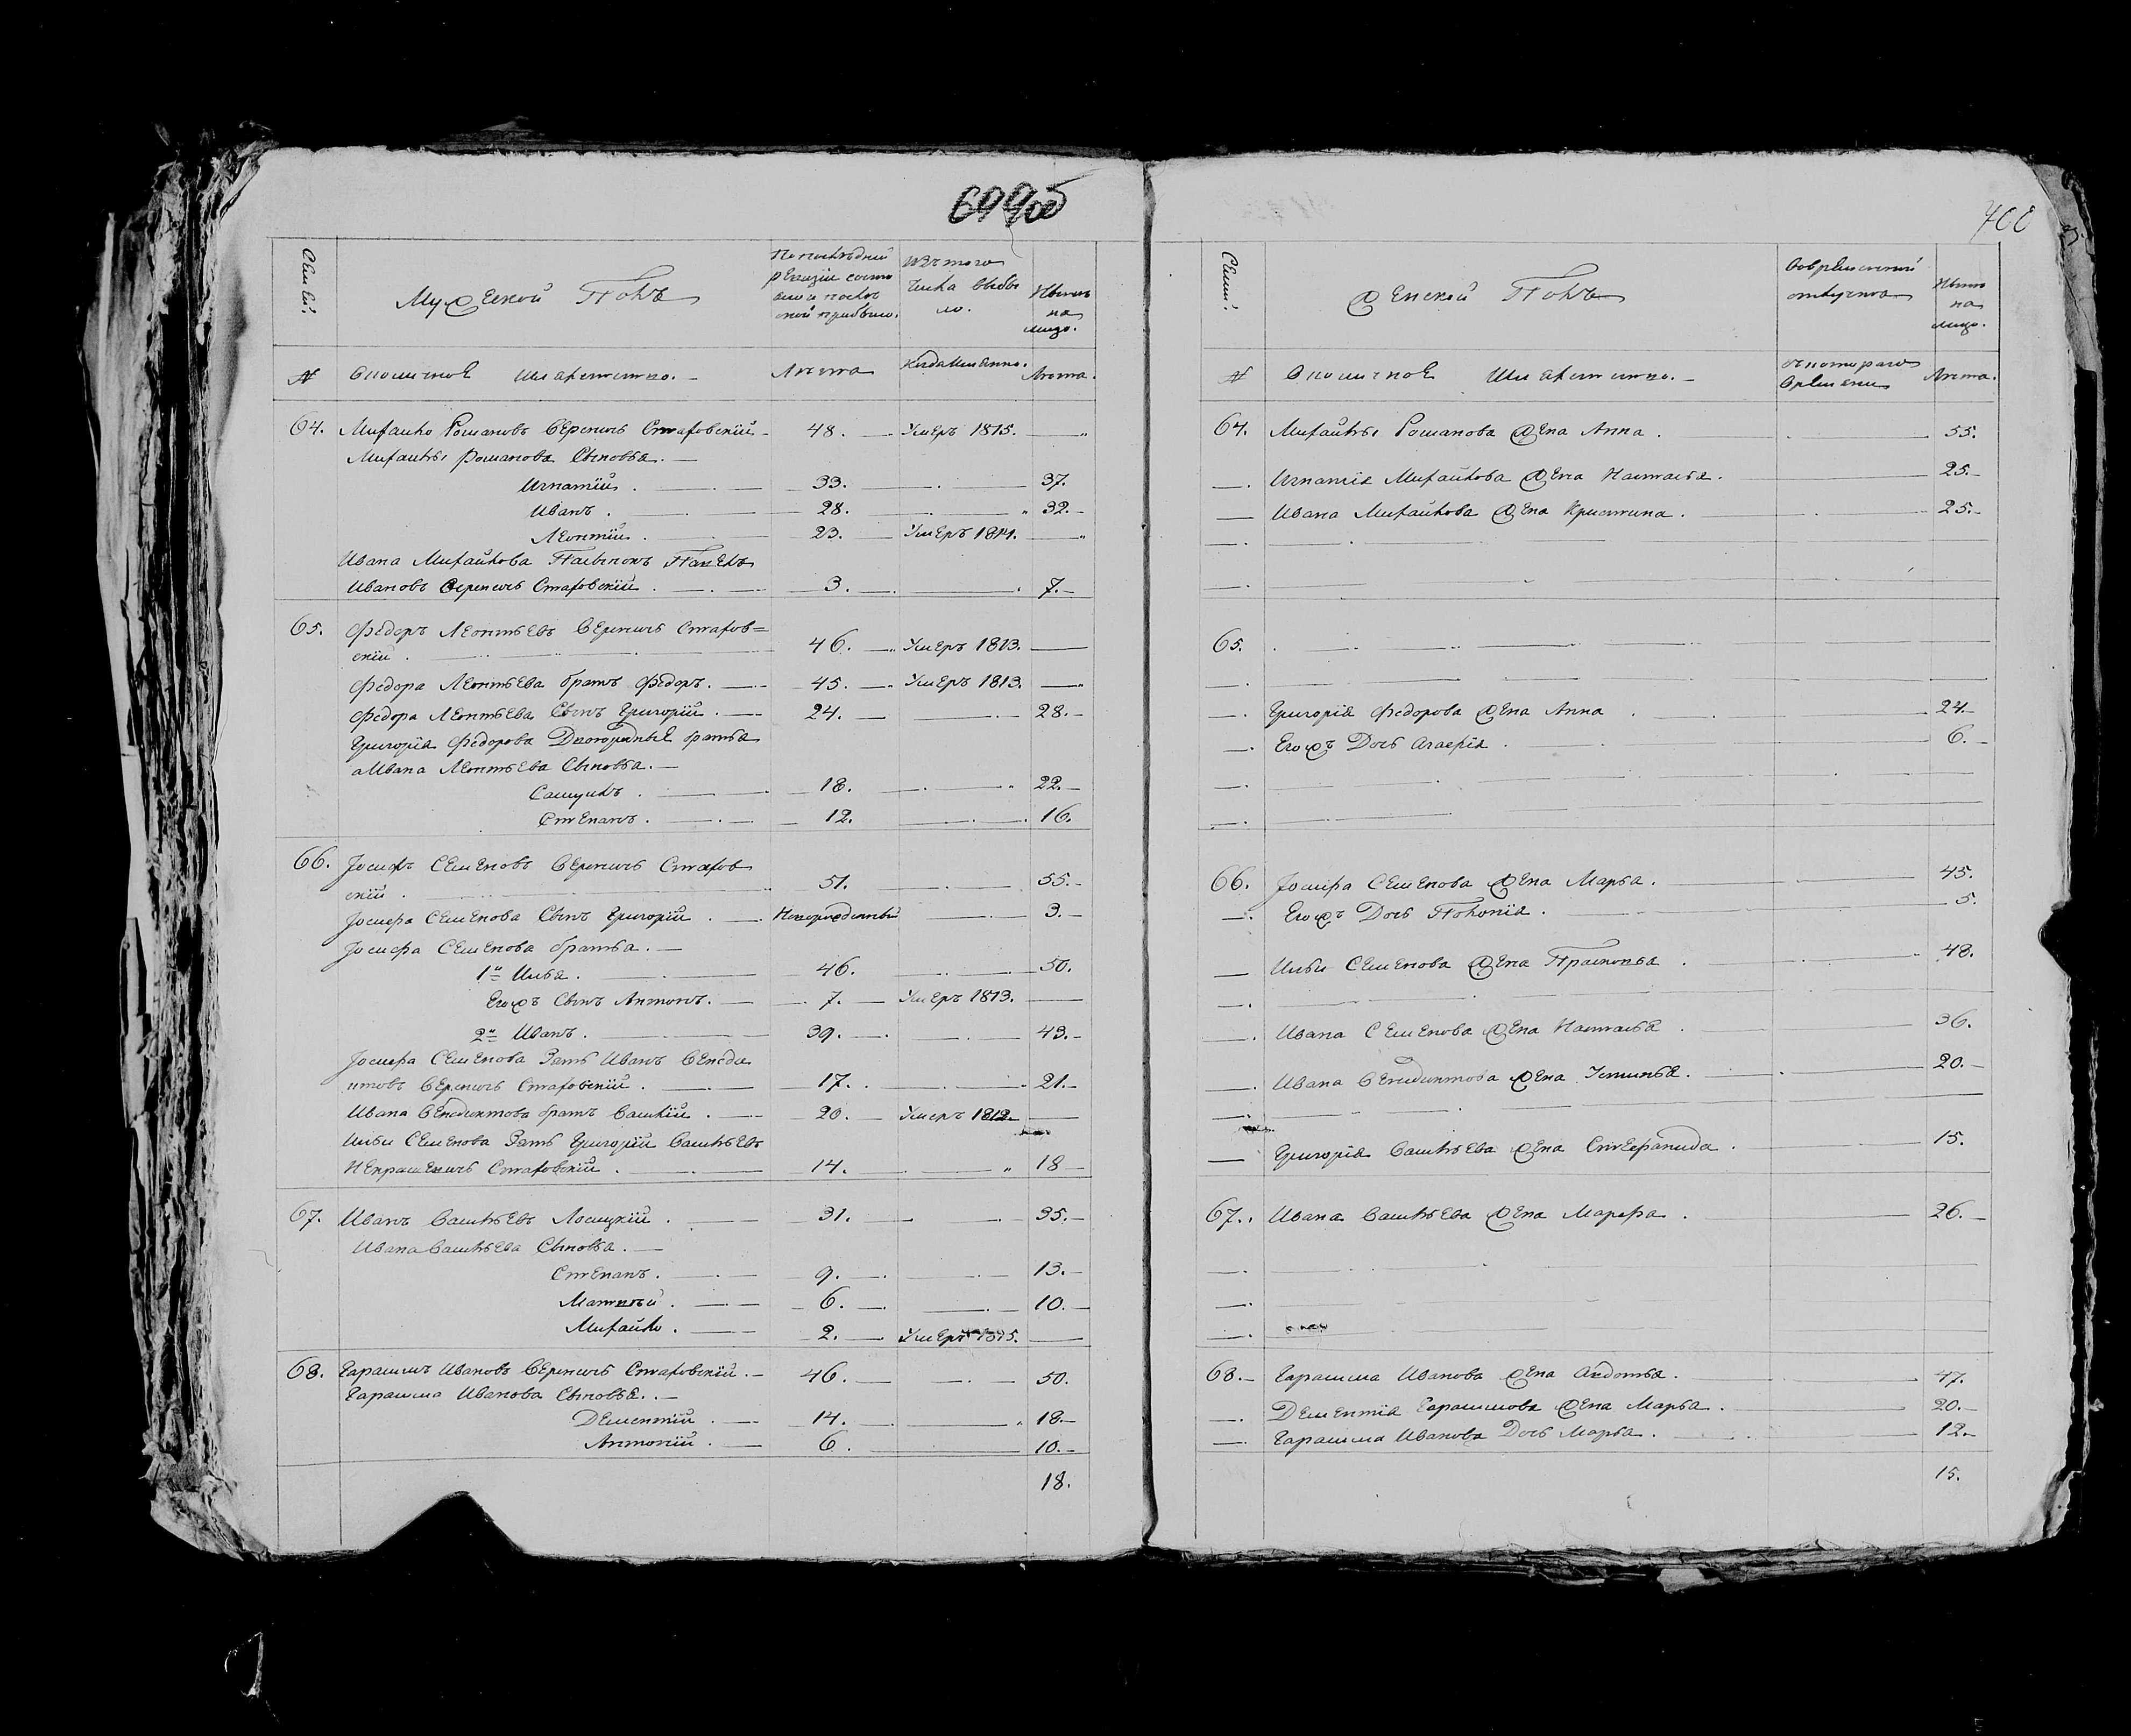 699об
Семьи.
Мужеской Полъ
По последней
ревизіи состо
яло и после
оной прибыло.
Изъ того
числа выбы
ло.
Ныне
на
лицо.
№
Лета
Когда именно.
Лета.
64. Михайло Романовъ Вереничь Стаховскій 48. Умеръ 1815.
Михайлы Романова Сыновья.
Игнатій 33. 37.
Иванъ 28. 32.
Леонтій 23. Умеръ 1814.
Ивана Михайлова Пасынокъ
Ивановъ Вереничь Стаховскій 3. 7.
65. Федоръ Леонтьевъ Вереничь Стахов=
скій 46. Умеръ 1813.
Федора Леонтьева братъ Федоръ. 45. Умеръ 1813.
Федора Леонтьева Сынъ Григорій 24. 28.
Григорія Федорова Двоюродные братья
Ивана Леонтьева Сыновья.
Самуилъ 18. 22.
Степанъ 12. 16.
66. Іосифъ Семеновъ Вереничь Стахов
скій 51. 55.
Іосифа Семенова Сынъ Григорій Новорожденный 3.
Іосифа Семенова братья.
1й Илья 46. 50.
Егожъ Сынъ Антонъ. 7. Умеръ 1813.
2й Иванъ 39. 43.
Іосифа Семенова Зять Иванъ Венеди
ктовъ Вереничь Стаховскій 17. 21.
Ивана Венедиктова братъ Василій 20. Умеръ 1812.
Ильи Семенова Зять Григорій Васильевъ
Некрашевичь Стаховскій 14. 18
67. Иванъ Васильевъ Лосицкій 31. 35.
Ивана Васильева Сыновья.
Степанъ 9. 13.
Матвей 6. 10.
Михайло 2. Умеръ 1815.
68. Гарасимъ Ивановъ Вереничь Стаховскій. 46. 50.
Гарасима Иванова Сыновья.
Дементій 14. 18.
Антоній 6. 10.
18.
700
Семьи.
Женской Полъ
Во временной
отлучке
Ныне
на
лицо.
№
съ котораго
времени
Лета.
64. Михайлы Романова Жена Анна 55.
Игнатія Михайлова Жена Настасья. 25.
Ивана Михайлова Жена Кристина. 25.
65.
Григорія Федорова Жена Анна 24
Егожъ Дочь Агафія 6.
66. Іосифа Семенова Жена Марья. 45.
Егожъ Дочь Полонія 5.
Ильи Семенова Жена Прасковья 48.
Ивана Семенова Жена Настасья 36.
Ивана Венедиктова Жена Устинья. 20.
Григорія Васильева Жена Стефанида 15.
67. Ивана Васильева Жена Марфа 26.
68. Гарасима Иванова Жена Авдотья. 47.
Дементія Гарасимова Жена Марья 20.
Гарасима Иванова Дочь Марья. 12.
15.